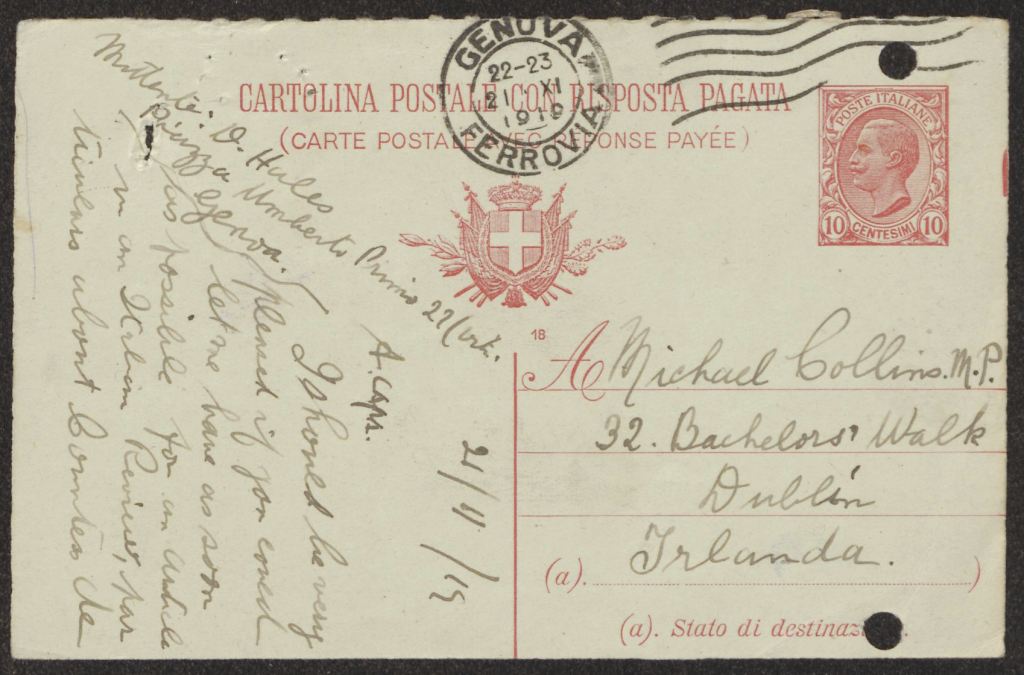 GENOVA
22-23
21 · XI
1919
FERROVIA
CARTOLINA POSTALE CON RISPOSTA PAGATA
(CARTE POSTALE AVEC RÉPONSE PAYÉE)
POSTE ITALIANE
10 CENTESIMI 10
18
A Michael Collins. M.P.
32. Bachelors' Walk
Dublin
Irlanda.
(a). )
(a). Stato di destinaz
Mittente: D. Hales
Piazza Umberto Primo 27/
Genoa.
21/11/19
A.
I should be very
pleased if you could
let me have as soon
as possible for an article
in an Italian Review, par
ticulars about Countess de